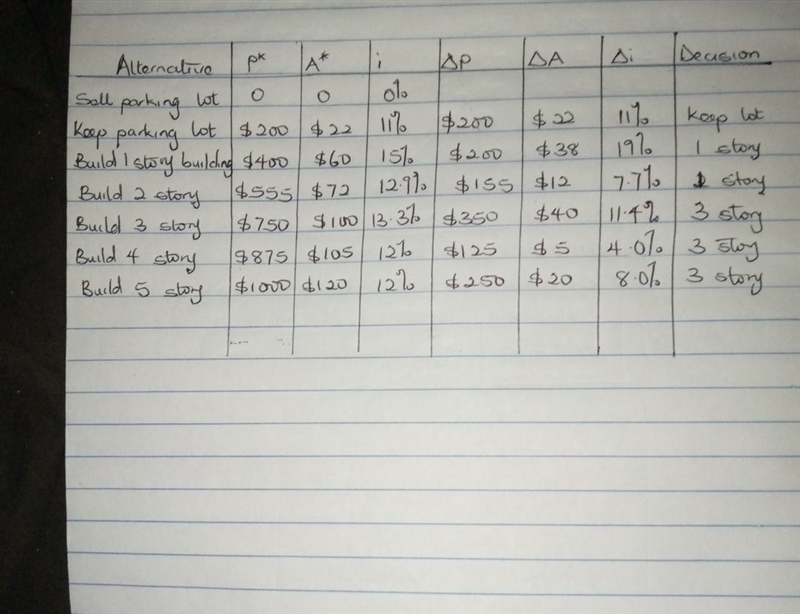 Alternative P* A* i ΔP ΔA Δi Decision
Sell parking lot 0 0 0%
Keep parking lot $200 $22 11% $200 $22 11% Keep lot
Build 1 story building $400 $60 15% $200 $38 19% 1 story
Build 2 story $555 $72 12.9% $155 $12 7.7% 1 story
Build 3 story $750 $100 13.3% $350 $40 11.4% 3 story
Build 4 story $875 $105 12% $125 $5 4.0% 3 story
Build 5 story $1000 $120 12% $250 $20 8.0% 3 story